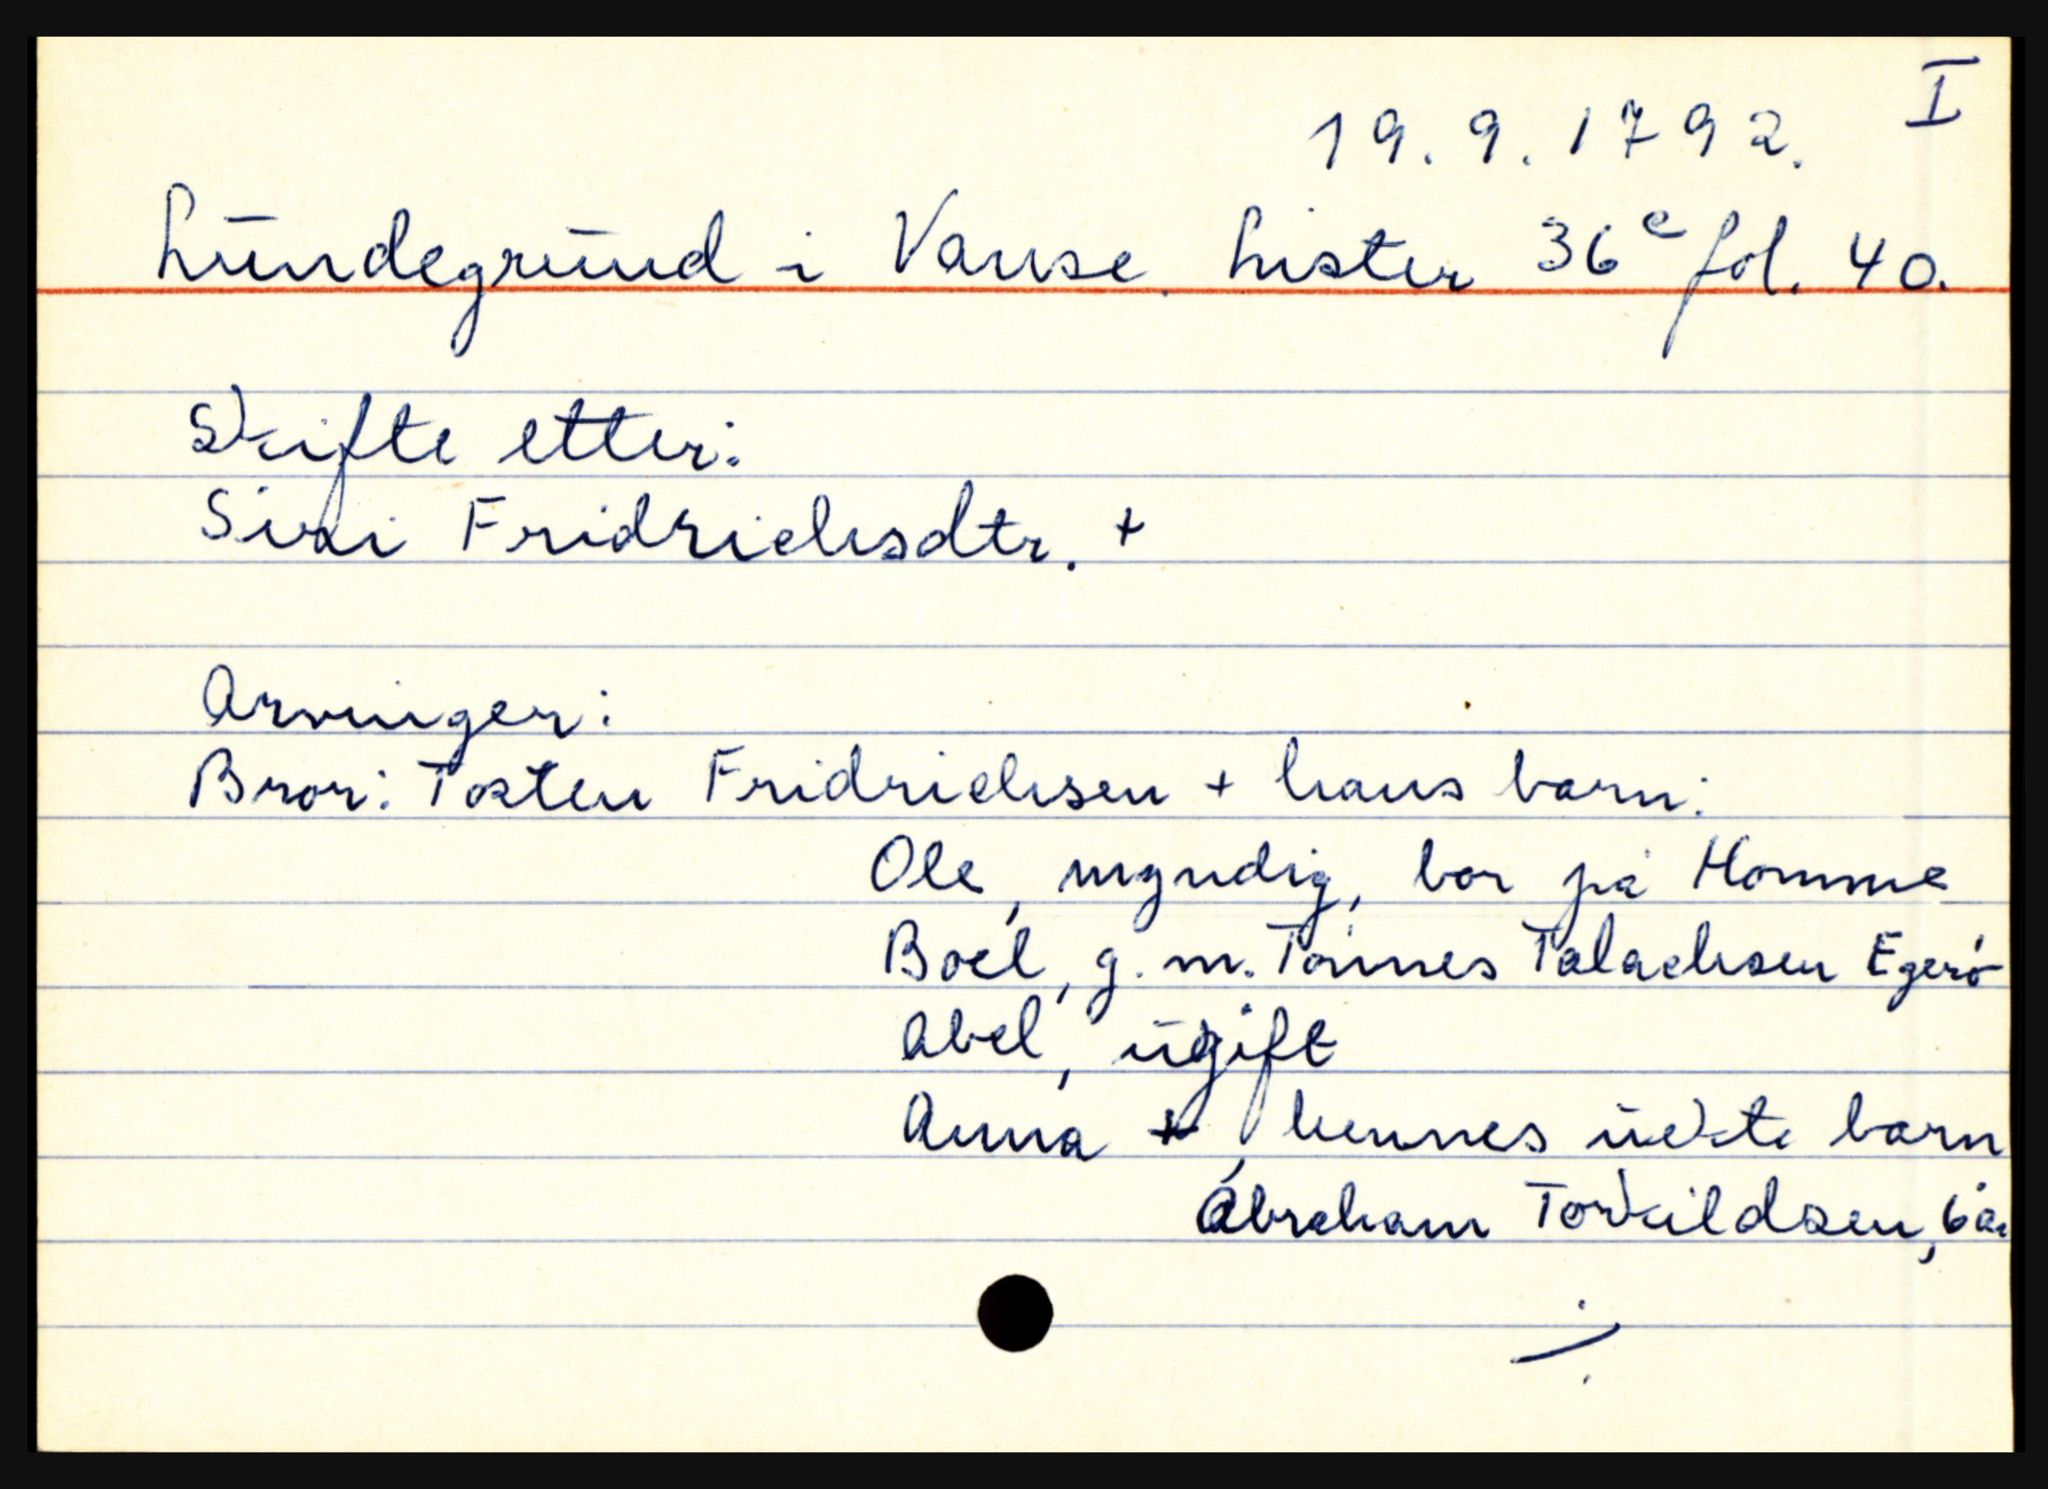 I
19.9.1792.
Lundegrund i Vanse. Lister 36e fol. 40.
Skifte etter:
Siri Fridrichsdtr. +
Arvinger:
Bror: Tosten Fridrichsen + hans barn:
Ole, myndig, bor på Homme
Boel, g.m. Tønnes Talachsen Egerö
Abel, ugift
Anna +, hennes uekte barn
Abraham Torkildsen, 6 år